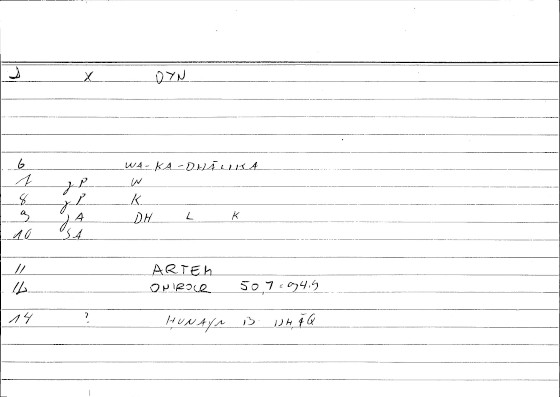 X DYN
6 WA-KA-DHĀLIKA
7 gP W
8 gP K
9 gA DH L K
10 SA
11 ARTEM
12 ONIROCR 50,7 : 94.5
14 ? HUNAYN B ISHĀQ